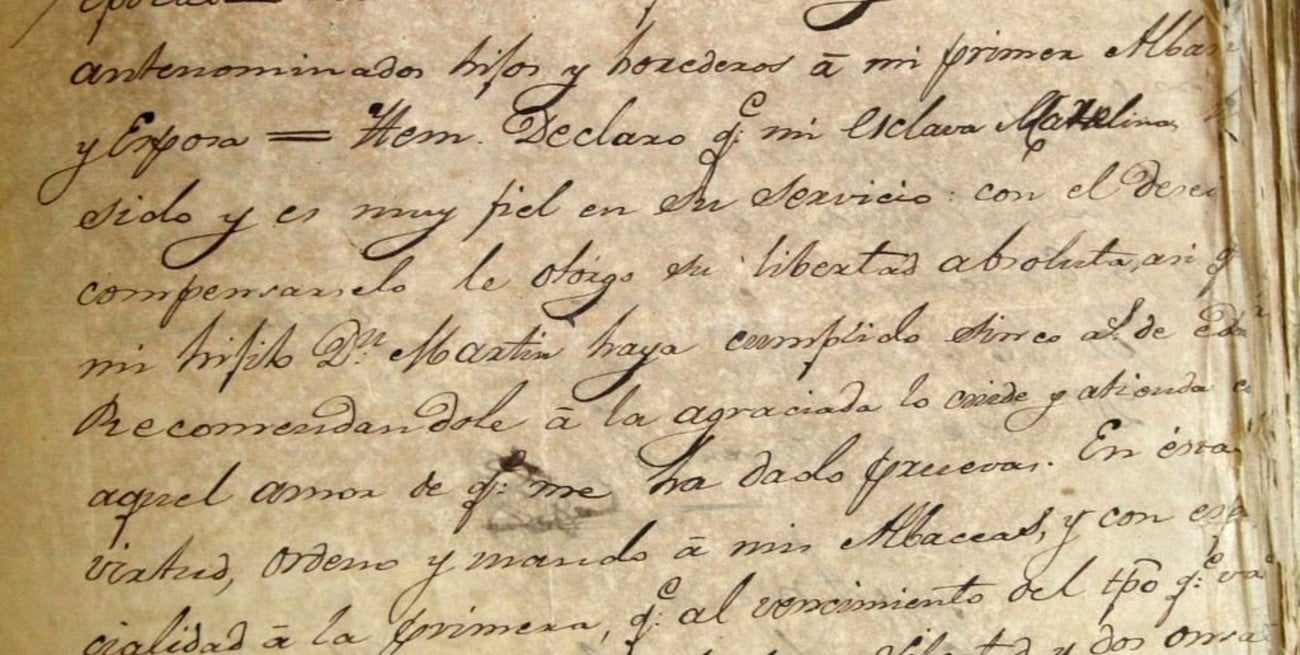 antenominados hijos y herederos â mi primer Alba
y Esposa = Item. Declaro q.e mi esclava Marselina
sido y es muy fiel en su servicio: con el deseo
compensarselo le otórgo su libertad absoluta, asi q
mi hijito D.n Martin haya cumplido sinco a.s de Eda
Recomendandole â la agraciada lo cuide y atienda
aquel amor de q.e me ha dado pruevas. En ésta
virtud, ordeno y mando â mis Albaceas, y con esp
cialidad â la primera, q.e al vencimiento del tpõ q.e va
y dos onsa